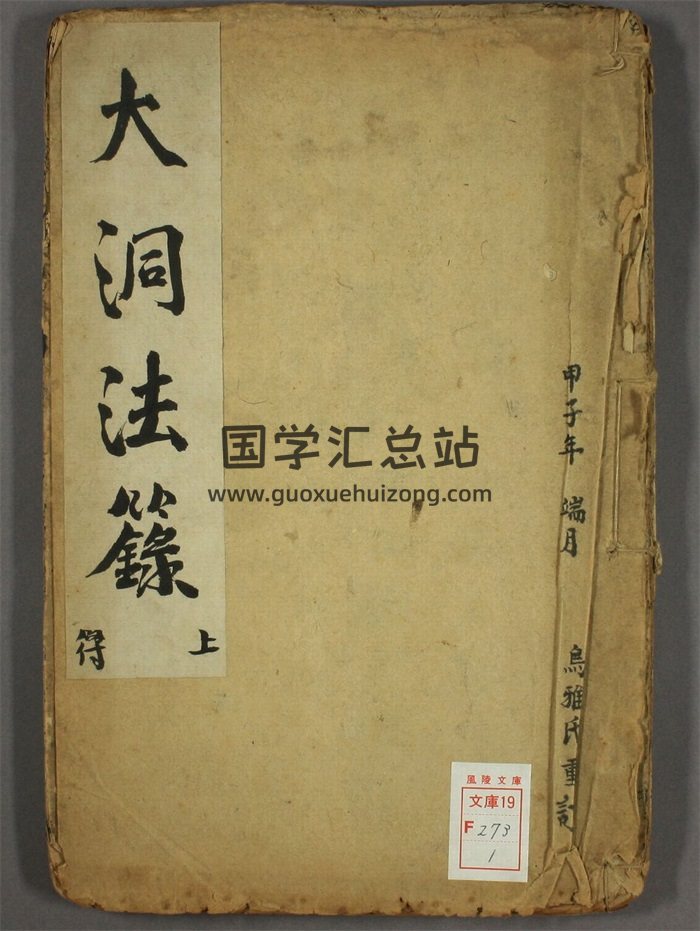 大洞法籙
上
符
甲子年 端月 烏雅氏重訂
国学汇总站
www.guoxuehuizong.com
風陵文庫
文庫19
F 273
1